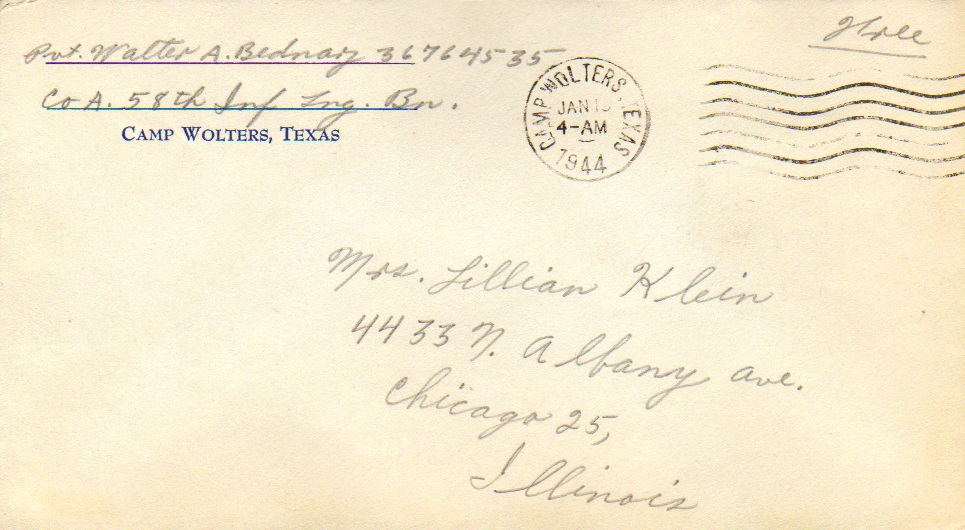 Pvt. Walter A. Bednarz 36764535
Co A. 58th Inf Trg. Bn.
CAMP WOLTERS, TEXAS
CAMP WOLTERS, TEXAS
JAN
4-AM
1944
Mrs. Lillian Klein
4433 N. Albany ave.
Chicago 25,
Illinois